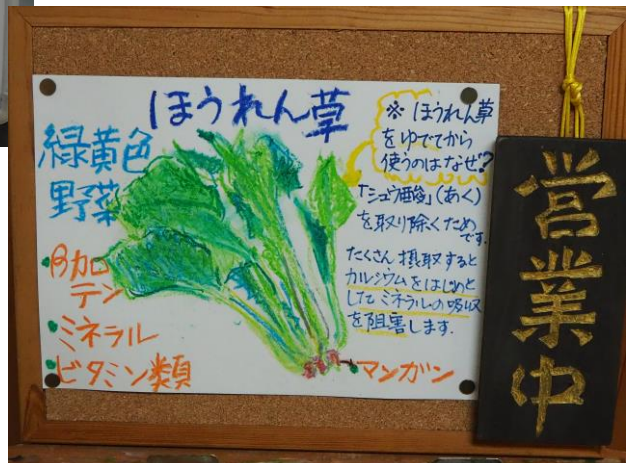 ほうれん草
緑黄色
野菜
・βカロ
テン
・ミネラル
・ビタミン類
・マンガン
※ ほうれん草
をゆでてから
使うのはなぜ?
「シュウ酸」(あく)
を取り除くため
です.
たくさん摂取すると
カルシウムをはじめと
したミネラルの吸収
を阻害します.
営業中